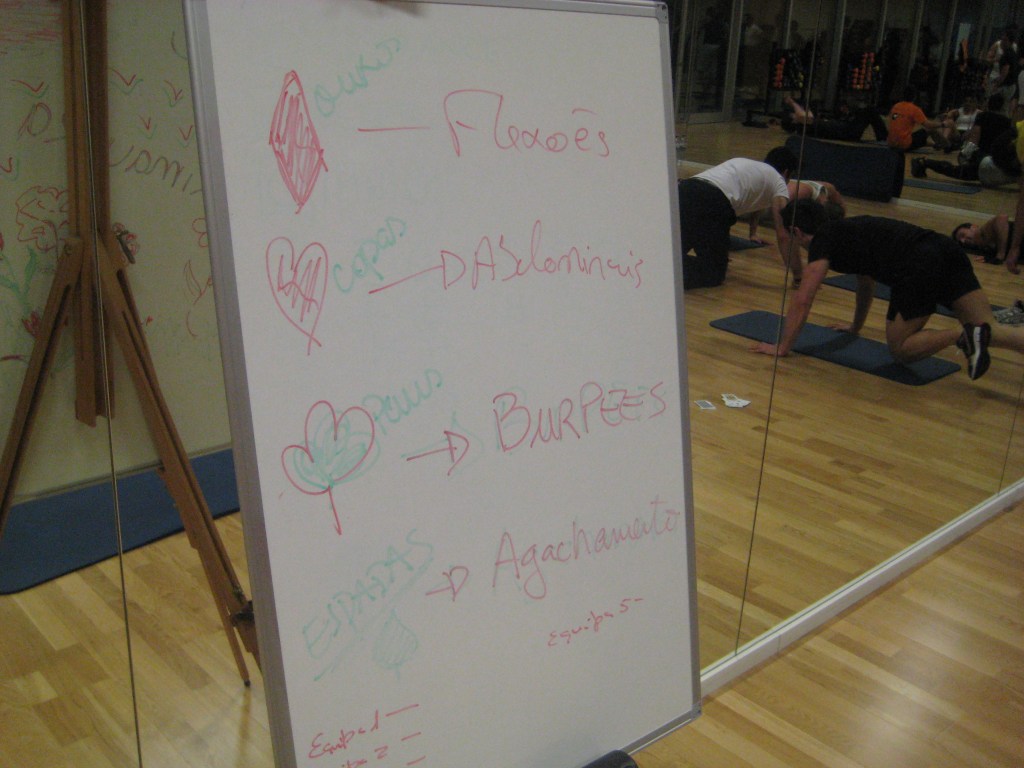 ouros — Flexões
copas → Abdominais
paus → BURPEES
ESPADAS → Agachamento
Equipa 5 -
Equipa 1 —
Equipa 2 —